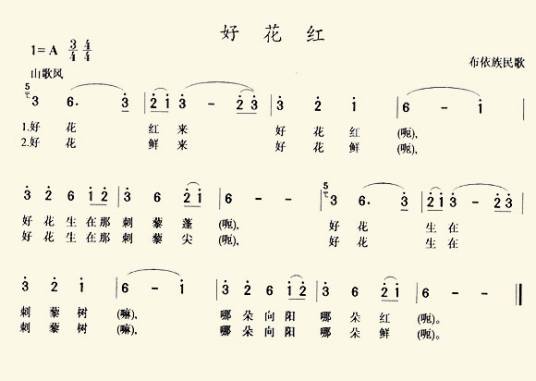 好 花 红
1=A 3/4 4/4
布依族民歌
山歌风
5 3 6. 3 | 2 1 3 - 2 3 | 3 2 1 | 6 - 1 |
1.好 花 红 来 好 花 红 (呃),
2.好 花 鲜 来 好 花 鲜 (呃),
3 2 6 1 2 | 3 2 6 2 1 | 6 - - | 5 3 6. 3 | 2 1 3 - 2 3 |
好 花 生 在 那 刺 藜 蓬 (呃), 好 花 生 在
好 花 生 在 那 刺 藜 尖 (呃), 好 花 生 在
3 2 1 | 6 - 1 | 3 2 6 1 2 | 3 2 2 1 | 6 - - ‖
刺 藜 树 (嘛), 哪 朵 向 阳 哪 朵 红 (呃)。
刺 藜 树 (嘛), 哪 朵 向 阳 哪 朵 鲜 (呃)。